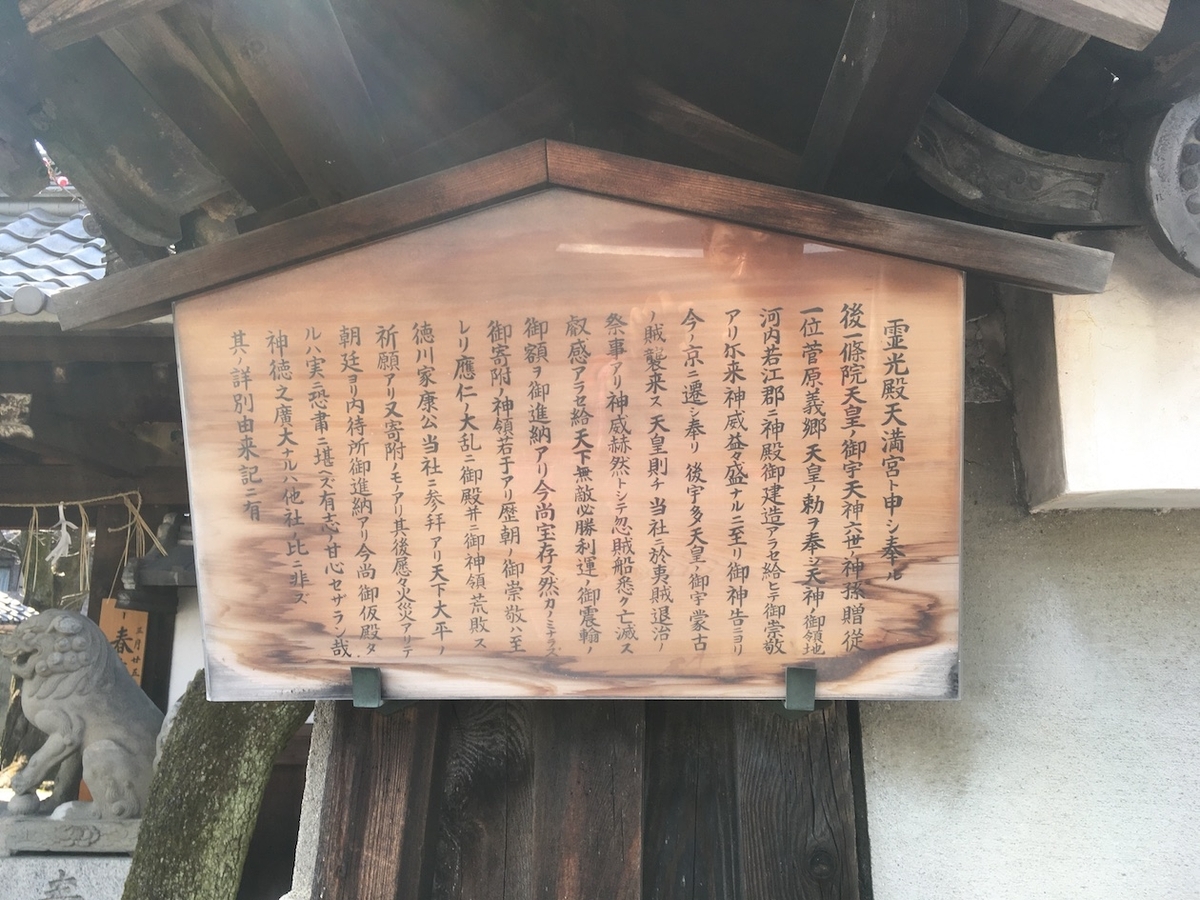 霊光殿天満宮ト申シ奉ル
後一條院天皇ノ御宇天神六世ノ神孫贈従
一位菅原義郷 天皇ノ勅ヲ奉シ天神ノ御領地
河内若江郡ニ神殿御建造アラセ給ヒテ御崇敬
アリ尓来神威益々盛ナルニ至リ御神告ニヨリ
今ノ京ニ遷シ奉リ 後宇多天皇ノ御宇蒙古
ノ賊襲来ス 天皇則チ 当社ニ於テ夷賊退治ノ
祭事アリ神威赫然トシテ忽賊船悉ク亡滅ス
叡感アラセ給天下無敵必勝利運ノ御震翰ノ
御額ヲ御進納アリ今尚宝存ス然カノミナラズ
御寄附ノ神領若干アリ歴朝ノ御崇敬ハ至
レリ應仁ノ大乱ニ御殿并ニ御神領荒敗ス
徳川家康公当社ニ参拝アリ天下大平ノ
祈願アリ又寄附ノモノアリ其後屡々火災アリテ
朝廷ヨリ内待所御進納アリ今尚御仮殿タ
ルハ実ニ恐粛ニ堪ヘズ有志ノ甘心セザラン哉
神徳之廣大ナルハ他社ノ比ニ非ス
其ノ詳別由来記ニ有
春
三月廿五